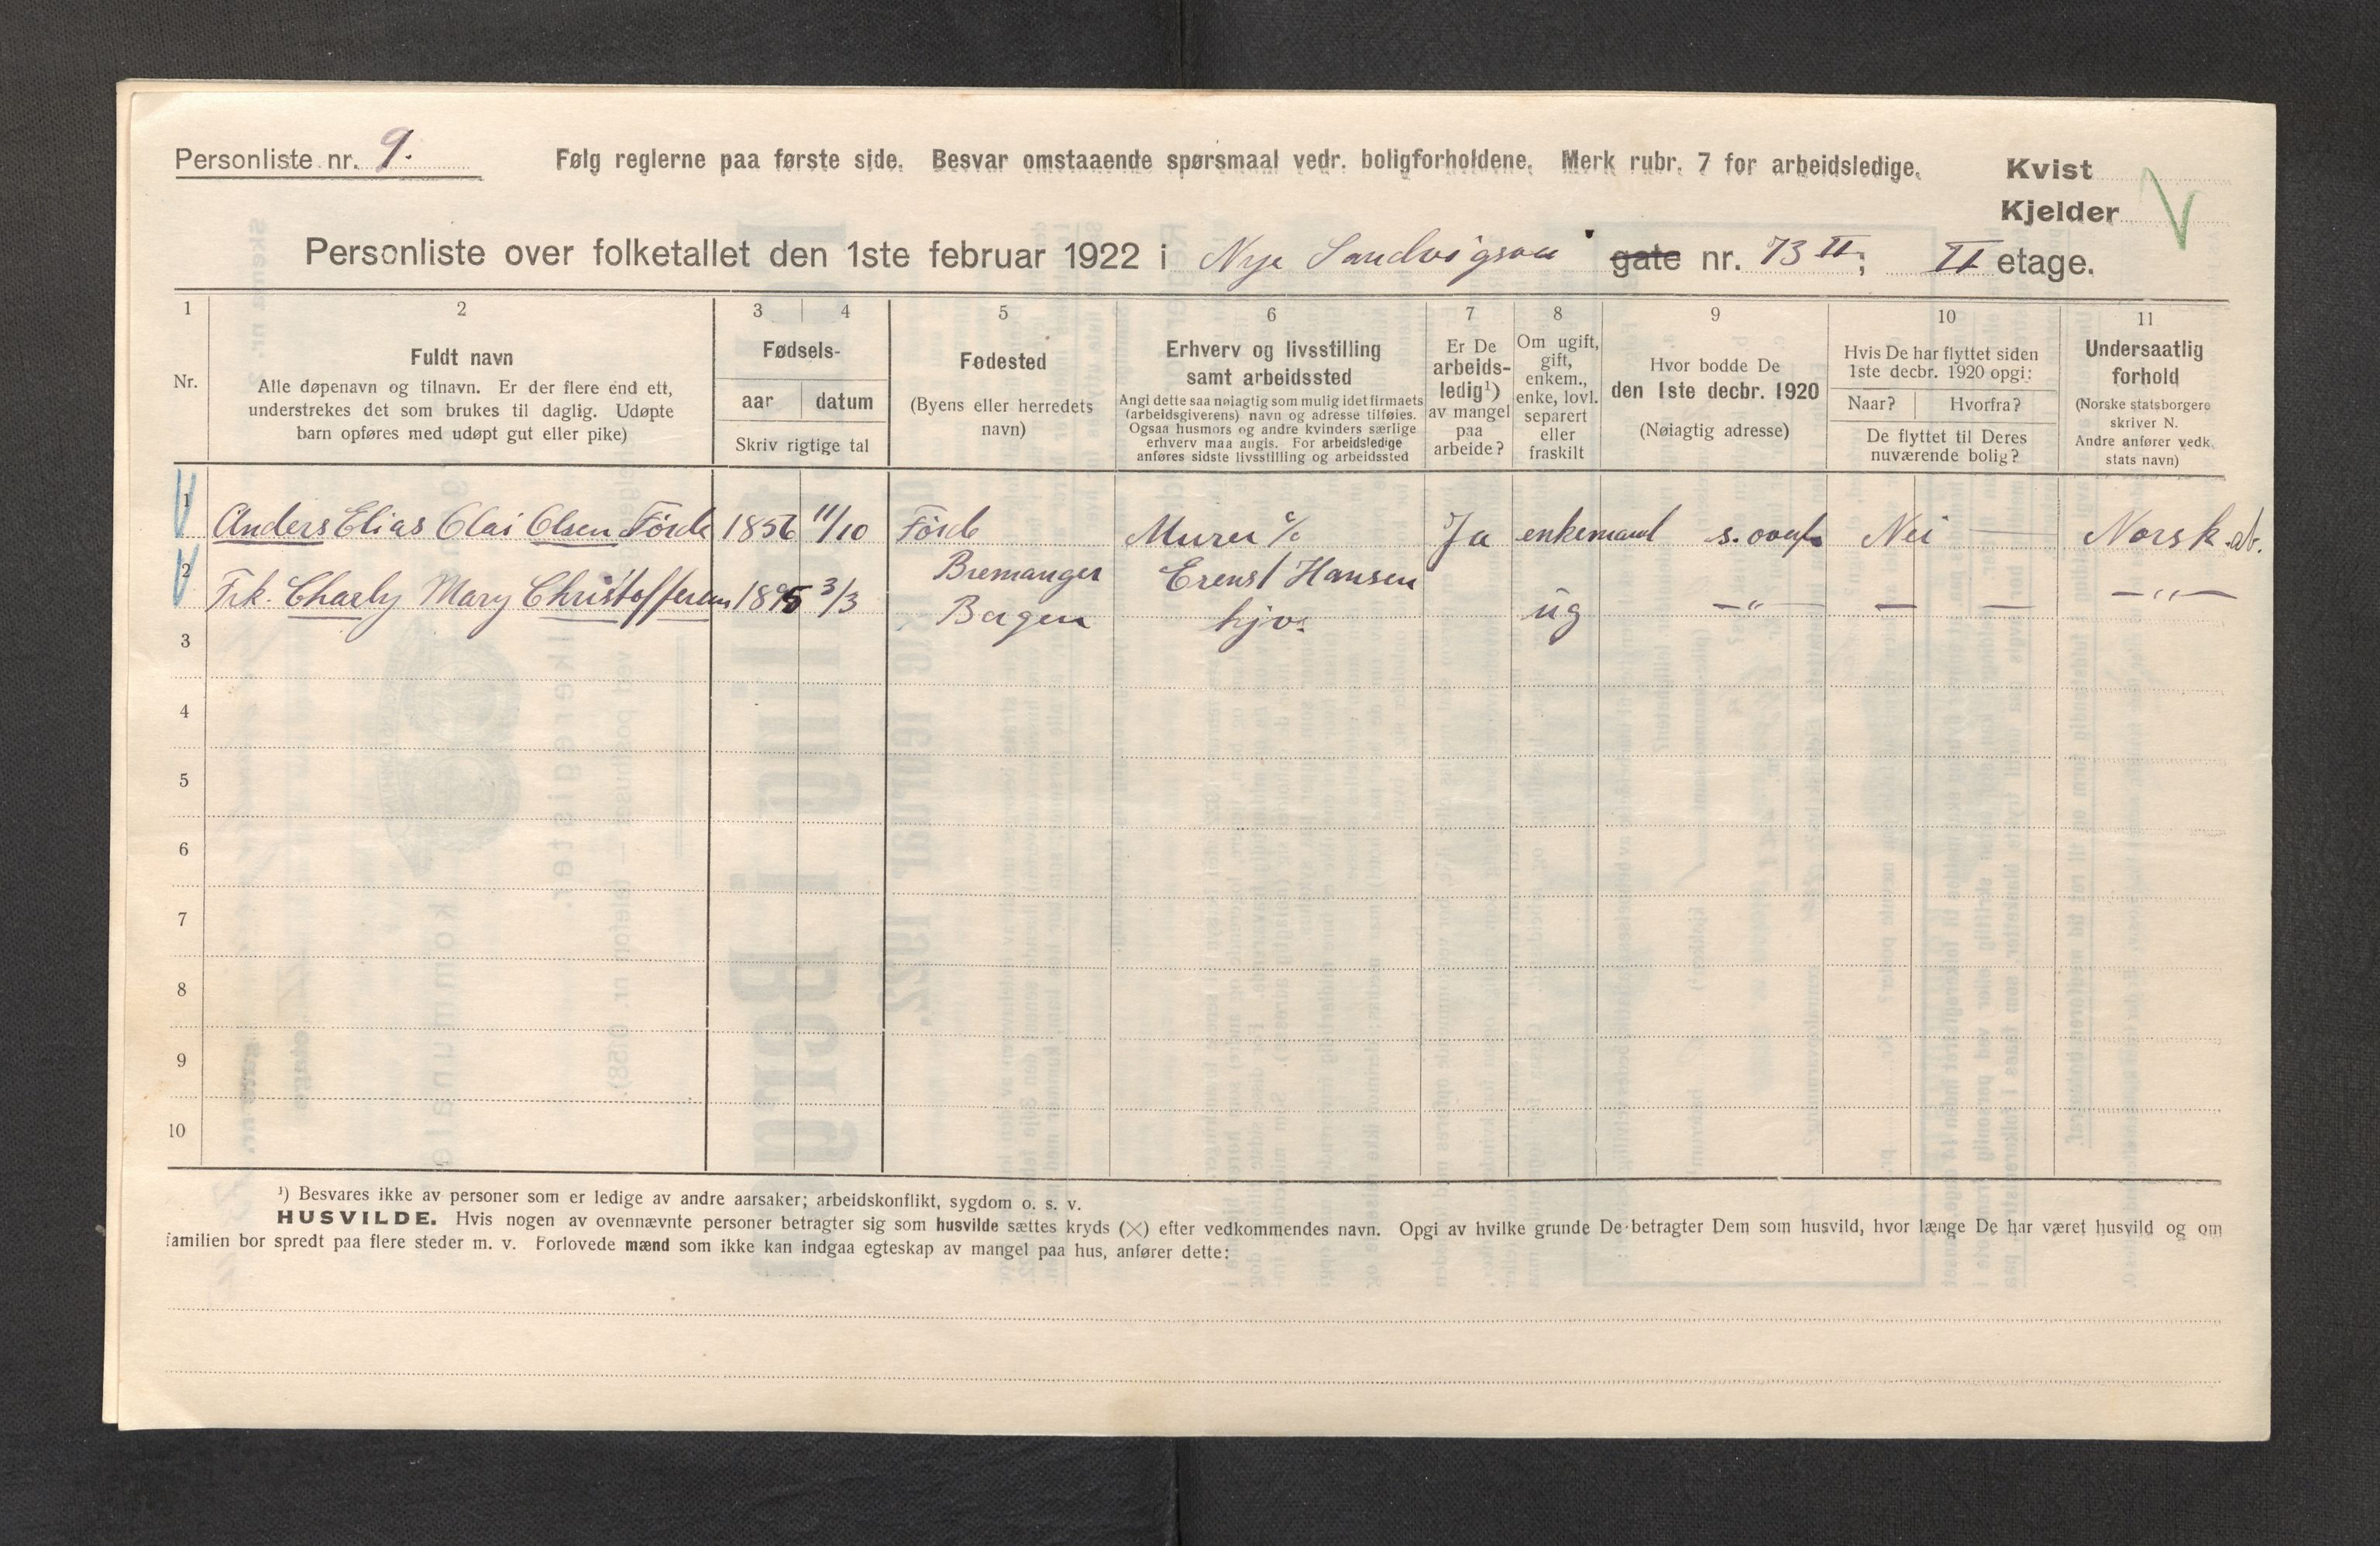 Personliste nr. 9. Følg reglerne paa første side. Besvar omstaaende spørsmaal vedr. boligforholdene. Merk rubr. 7 for arbeidsledige. Kvist
Kjelder
Personliste over folketallet den 1ste februar 1922 i Nye Sandvigsvei gate nr. 73 II; II etage.
1 2 3 4 5 6 7 8 9 10 11
Nr.
Fuldt navn
Alle døpenavn og tilnavn. Er der flere end ett,
understrekes det som brukes til daglig. Udøpte
barn opføres med udøpt gut eller pike)
Fødsels-
aar datum
Skriv rigtige tal
Fødested
(Byens eller herredets
navn)
Erhverv og livsstilling
samt arbeidssted
Angi dette saa nøiagtig som mulig idet firmaets
(arbeidsgiverens) navn og adresse tilføies.
Ogsaa husmors og andre kvinders særlige
erhverv maa angis. For arbeidsledige
anføres sidste livsstilling og arbeidssted
Er De
arbeids-
ledig¹)
av mangel
paa
arbeide?
Om ugift,
gift,
enkem.,
enke, lovl.
separert
eller
fraskilt
Hvor bodde De
den 1ste decbr. 1920
(Nøiagtig adresse)
Hvis De har flyttet siden
1ste decbr. 1920 opgi:
Naar? Hvorfra?
De flyttet til Deres
nuværende bolig?
Undersaatlig
forhold
(Norske statsborgere
skriver N.
Andre anfører vedk.
stats navn)
1 Anders Elias Olai Olsen Förde 1856 11/10 Förde Murer c/o Ja enkemand s. ovenf. Nei — Norsk
Bremanger Erenst Hansen
2 Frk. Charly Mary Christoffersen 1895 3/3 Bergen hjv. ug —"— — — —"—
3
4
5
6
7
8
9
10
¹) Besvares ikke av personer som er ledige av andre aarsaker; arbeidskonflikt, sygdom o. s. v.
HUSVILDE. Hvis nogen av ovennævnte personer betragter sig som husvilde sættes kryds (×) efter vedkommendes navn. Opgi av hvilke grunde De betragter Dem som husvild, hvor længe De har været husvild og om
familien bor spredt paa flere steder m. v. Forlovede mænd som ikke kan indgaa egteskap av mangel paa hus, anfører dette: